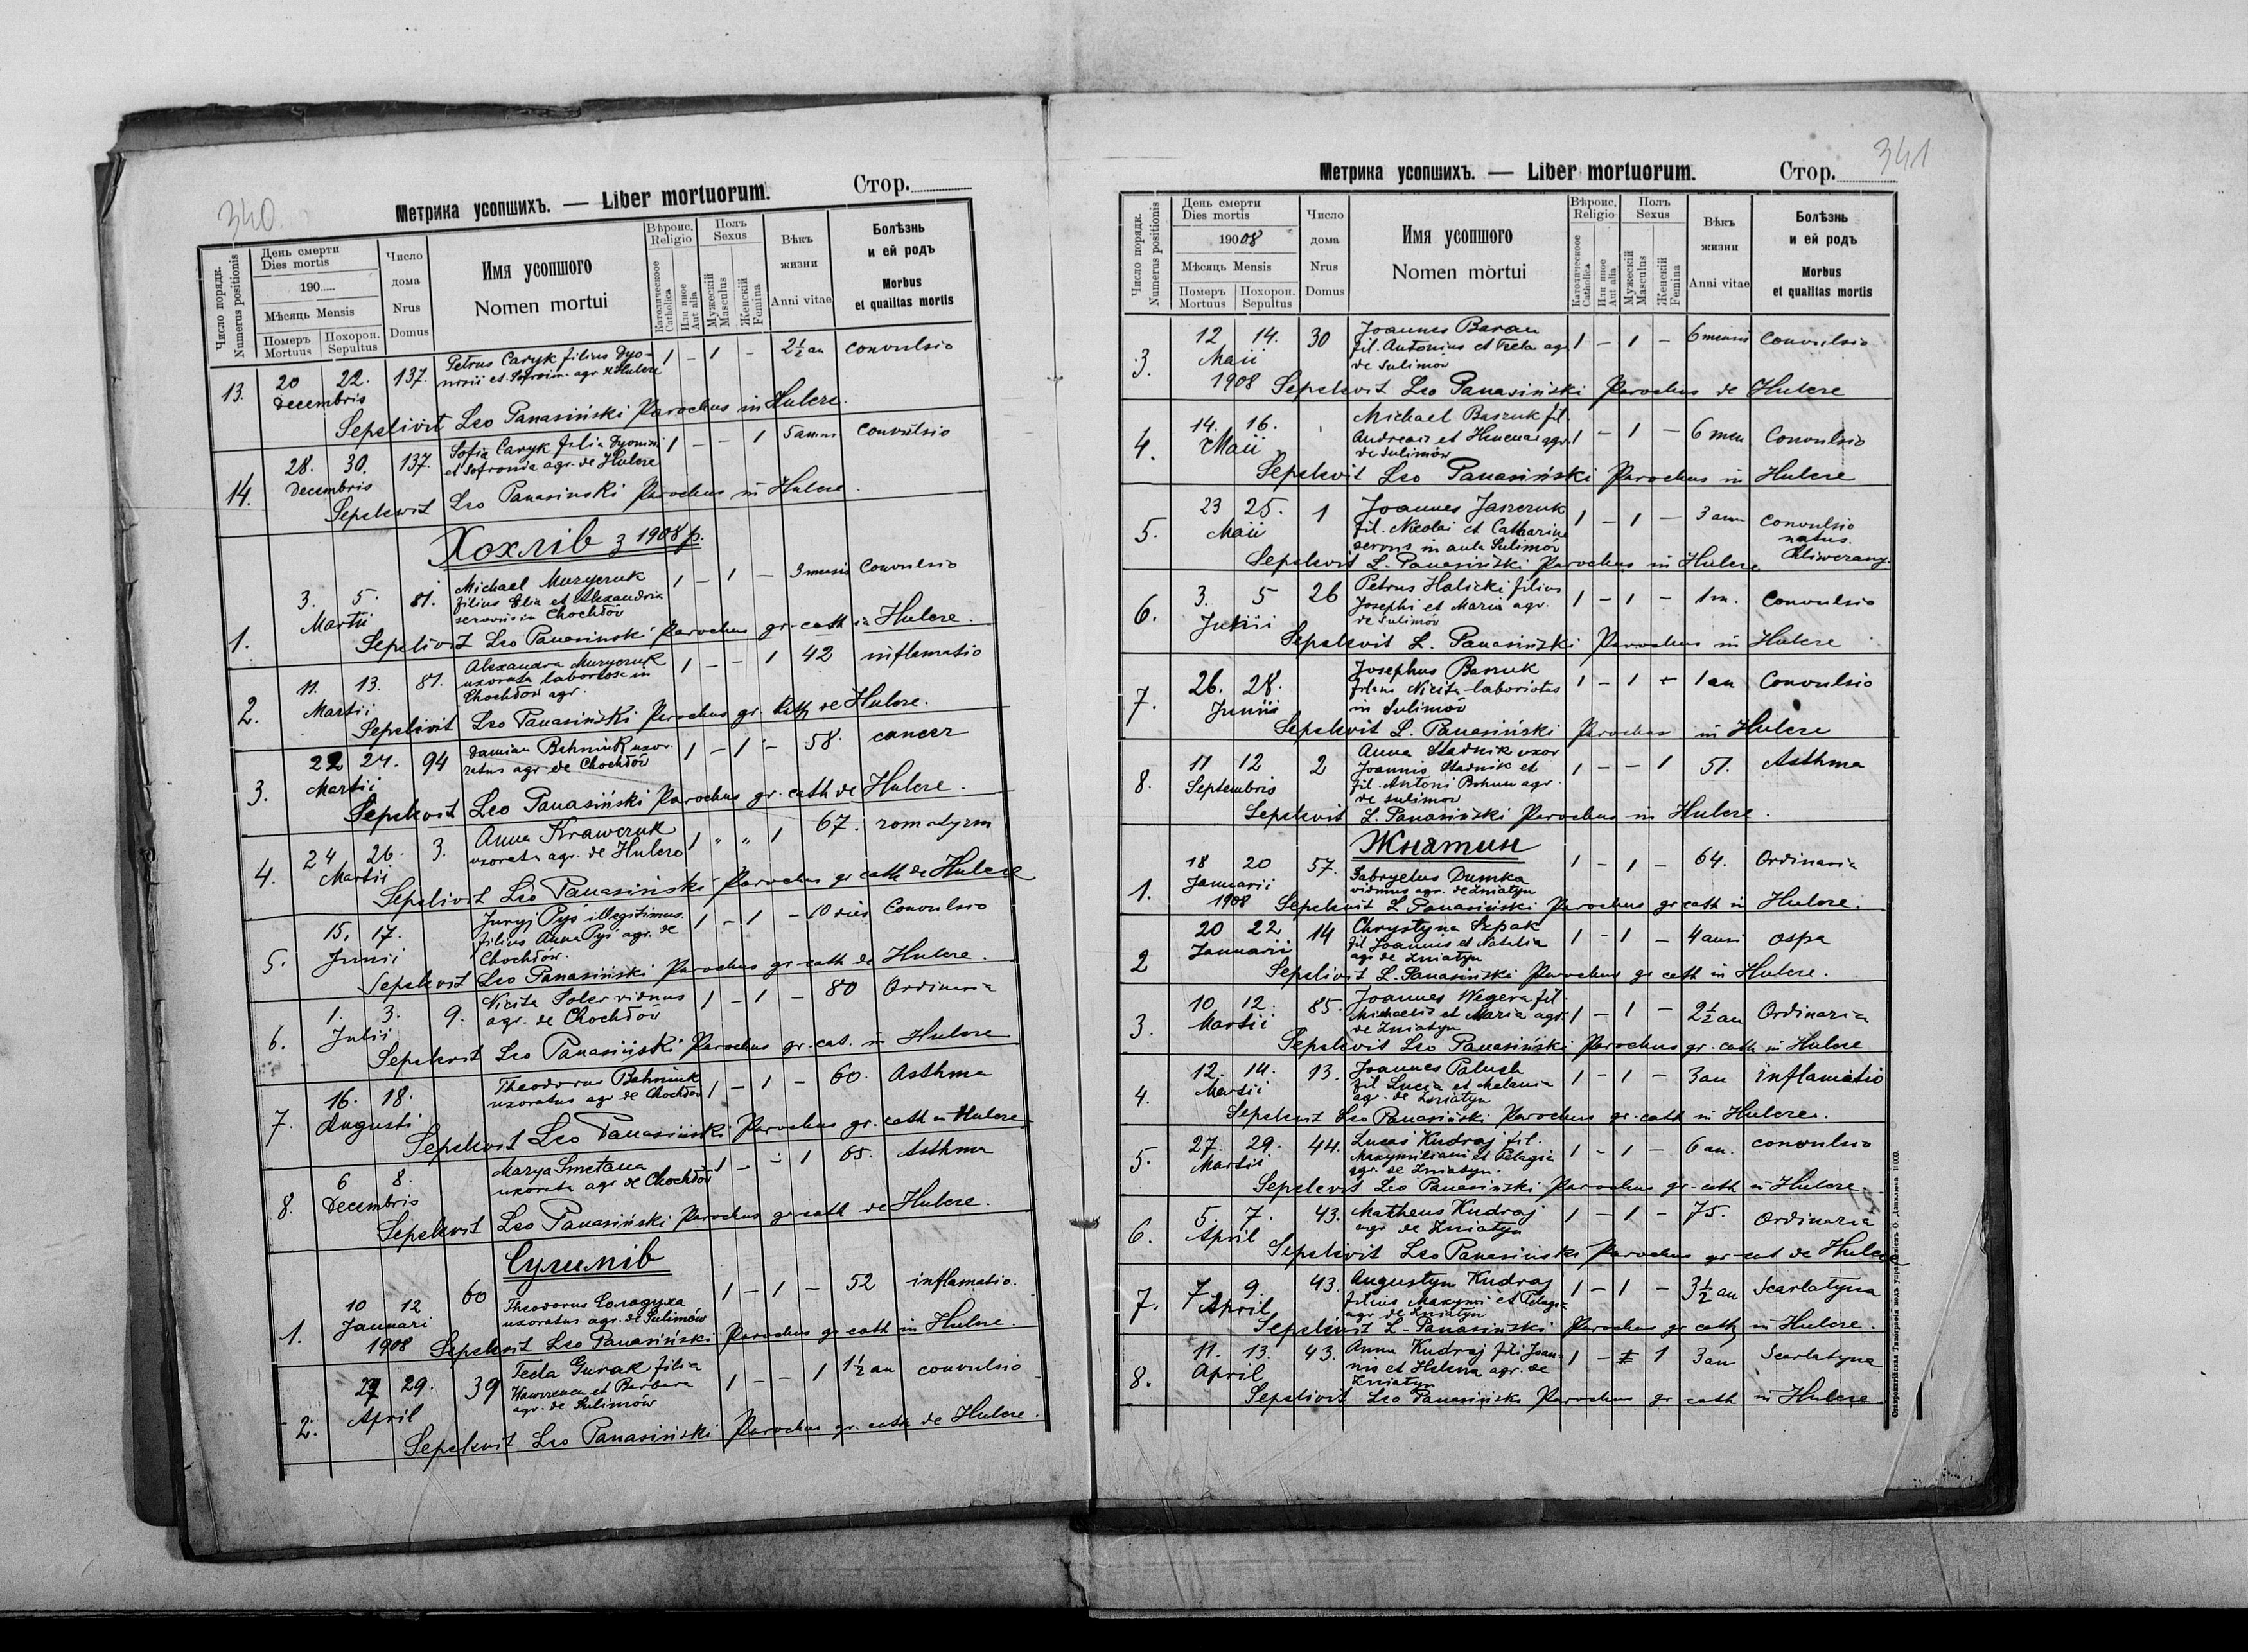 340
Метрика усопшихъ. — Liber mortuorum. Стор.
Число порядк. Numerus positionis
День смерти Dies mortis
190
Мѣсяць Mensis
Померъ Mortuus
Похорон. Sepultus
Число дома Nrus Domus
Имя усопшого Nomen mortui
Вѣроис. Religio
Католическое Catholica
Или иное Aut alia
Полъ Sexus
Мужескій Masculus
Женскій Femina
Вѣкъ жизни Anni vitae
Болѣзнь и ей родъ Morbus et qualitas mortis
13. 20 22. decembris 137. Petrus Caryk filius Dyo-
nisii et Sofroni. agr. de Hulcze 1 – 1 – 2½ an convulsio
Sepelivit Leo Panasiński Parochus in Hulcze.
14. 28. 30. decembris 137. Sofia Caryk filia Dyonisii
et Sofronia agr. de Hulcze 1 – – 1 5 annus convulsio
Sepelivit Leo Panasinski Parochus in Hulcze.
Хохлів з 1908 р.
1. 3. 5. Martii 81. Michael Muzyczuk
filius Elia et Alexandria
servus in Chochłów 1 – 1 – 3 mensis Convulsio
Sepelivit Leo Panasinski Parochus gr-cath in Hulcze.
2. 11. 13. Martii 81. Alexandra Muzyczuk
uxorata laboriosa in
Chochłów agr. 1 – – 1 42 inflamatio
Sepelivit Leo Panasiński Parochus gr. Kath de Hulcze.
3. 22 24. Martii 94 Damian Bahniuk uxor-
ratus agr. de Chochłów 1 – 1 – 58. cancer
Sepelivit Leo Panasiński Parochus gr. cath de Hulcze.
4. 24 26. Martii 3. Anna Krawczuk
uxorata agr. de Hulcze 1 " " 1 67. romatyzm
Sepelivit Leo Panasiński Parochus gr cath de Hulcze
5. 15. 17. Junii Juryj Pyś illegitimus
filius Anna Pyś agr. de
Chochłów. 1 – 1 – 10 dies Convulsio
Sepelivit Leo Panasiński Parochus gr-cath de Hulcze.
6. 1. 3. Julii 9. Nicita Soler viduus
agr. de Chochłów 1 – 1 – 80 Ordinaria
Sepelivit Leo Panasiński Parochus gr. cat. in Hulcze
7. 16. 18. Augusti Theodorus Bahniuk
uxoratus agr de Chochłów 1 – 1 – 60. Asthma
Sepelivit Leo Panasiński Parochus gr. cath in Hulcze
8. 6 8. Decembris Marya Smetana
uxorata agr de Chochłów 1 – – 1 65. Asthma
Sepelivit Leo Panasiński Parochus gr-cath de Hulcze.
Сулимів
1. 10 12 Januari 1908 60 Theodorus Солодуха
uxoratus agr. de Sulimów 1 – 1 – 52 inflamatio.
Sepelivit Leo Panasiński Parochus gr cath in Hulcze.
2. 27 29. April 39 Tecla Gurak filia
Wawrzenca et Barbara
agr. de Sulimów 1 – – 1 1½ an convulsio
Sepelivit Leo Panasiński Parochus gr. cath de Hulcze.
341
Метрика усопшихъ. — Liber mortuorum. Стор.
Число порядк. Numerus positionis
День смерти Dies mortis
1908
Мѣсяць Mensis
Померъ Mortuus
Похорон. Sepultus
Число дома Nrus Domus
Имя усопшого Nomen mortui
Вѣроис. Religio
Католическое Catholica
Или иное Aut alia
Полъ Sexus
Мужескій Masculus
Женскій Femina
Вѣкъ жизни Anni vitae
Болѣзнь и ей родъ Morbus et qualitas mortis
3. 12 14. Maii 1908 30 Joannes Baran
fil. Antonius et Tecla agr
de Sulimów 1 – 1 – 6 mensis Convulsio
Sepelivit Leo Panasiński Parochus de Hulcze
4. 14. 16. Maii Michael Baszuk fil.
Andreas et agr.
de Sulimów 1 – 1 – 6 men Convulsio
Sepelivit Leo Panasiński Parochus in Hulcze
5. 23 25. Maii 1 Joannes Jaszczuk
fil. Nicolai et Catharina
servus in aula Sulimów 1 – 1 – 3 ann convulsio
natus.
Kliwczany.
Sepelivit L. Panasiński Parochus in Hulcze
6. 3. 5 Junii 26 Petrus Halicki filius
Josephi et Maria agr.
de Sulimów 1 – 1 – 1 m. Convulsio
Sepelivit L. Panasiński Parochus in Hulcze
7. 26. 28. Junii Josephus Baszuk
filius Nicita laboriotus
in Sulimów 1 – 1 – 1 an Convulsio
Sepelivit L. Panasiński Parochus in Hulcze
8. 11 12 Septembris 2 Anna Stadnik uxor
Joannis Stadnik et
fil. Antoni Bohun agr.
de Sulimow 1 – – 1 51. Asthma
Sepelivit L. Panasiński Parochus in Hulcze.
Жнятин
1. 18 20 Januarii 1908 57. Gabryelus Dumka
viduus agr. de Zniatyn 1 – 1 – 64. Ordinaria
Sepelivit L Panasiński Parochus gr cath in Hulcze.
2 20 22 Januarii 14 Chrystyna Szpak
fil Joannis et Natalia
agr de Zniatyn 1 – 1 – 4 anni ospa
Sepelivit L. Panasiński Parochus gr cath in Hulcze.
3. 10 12. Martii 85. Joannes Wegera fil.
Michaelis et Maria agr.
de Zniatyn 1 – 1 – 2½ an Ordinaria
Sepelivit Leo Panasiński Parochus gr. cath in Hulcze
4. 12. 14. Martii 13. Joannes Paluch
fil Lucia et Melania
agr. de Zniatyn 1 – 1 – 3 an inflamatio
Sepelivit Leo Panasiński Parochus gr. cath in Hulcze.
5. 27. 29. Martii 44. Lucas Kudraj fil.
Maxymiliani et Pelagia
agr. de Zniatyn. 1 – 1 – 6 an. convulsio
Sepelivit Leo Panasiński Parochus gr-cath in Hulcze.
6. 5. 7. April 43. Matheus Kudraj
agr de Zniatyn 1 – 1 – 75. Ordinaria
Sepelivit Leo Panasiński Parochus gr-cat de Hulcze
7. 7 9. April 43. Augustyn Kudraj
filius Maxymi et Pelagia
agr. de Zniatyn 1 – 1 – 3½ an Scarlatyna
Sepelivit L. Panasiński Parochus gr cath in Hulcze.
8. 11. 13. April 43. Anna Kudraj fili Joan-
nis et Helena agr. de
Zniatyn 1 – 1 3 an Scarlatyna
Sepelivit Leo Panasiński Parochus gr cath in Hulcze.